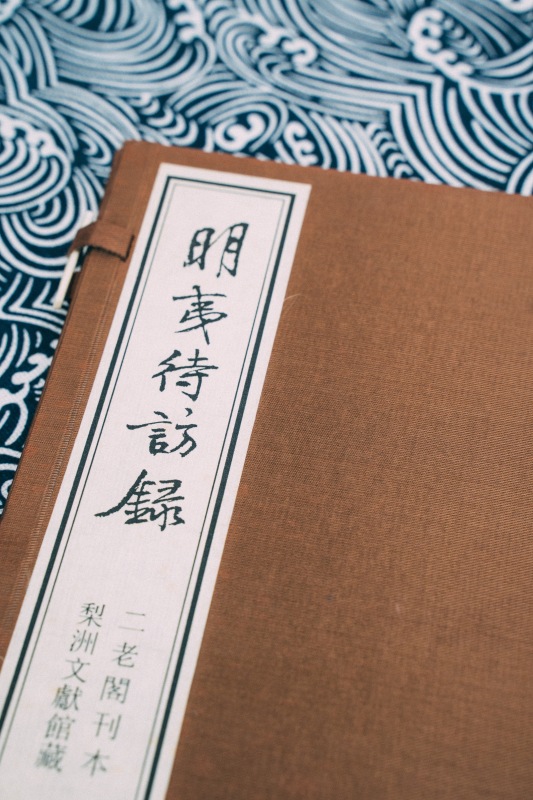 明夷待訪録
二老閣刊本
梨洲文獻館藏